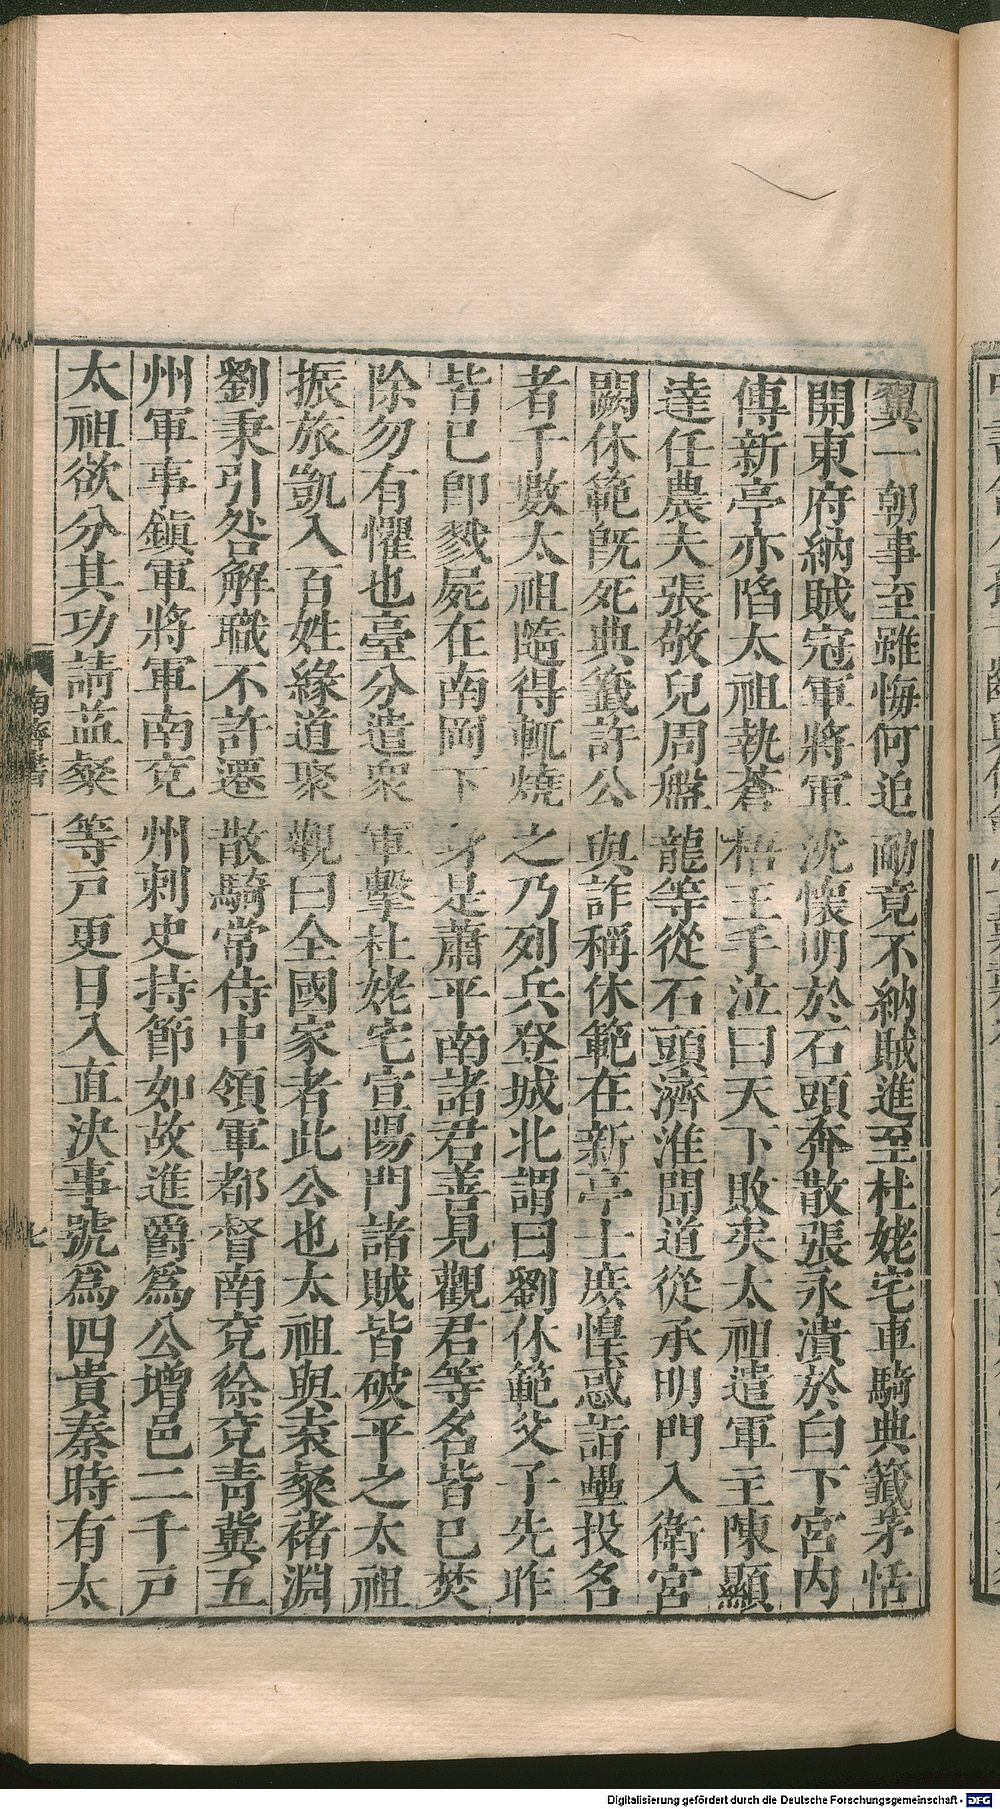 翼一朝事至雖悔何追勔竟不納賊進至杜姥宅車騎典籤茅恬
開東府納賊冠軍將軍沈懷明於石頭奔散張永潰於白下宮內
傳新亭亦陷太祖執蒼梧王手泣曰天下敗矣太祖遣軍主陳顯
達任農夫張敬兒周盤龍等從石頭濟淮間道從承明門入衛宮
闕休範旣死典籤許公與詐稱休範在新亭士庶惶惑詣壘投名
者千數太祖隨得輒燒之乃列兵登城北謂曰劉休範父子先昨
皆已卽戮屍在南岡下身是蕭平南諸君善見觀君等名皆已焚
除勿有懼也臺分遣衆軍擊杜姥宅宣陽門諸賊皆破平之太祖
振旅凱入百姓緣道聚觀曰全國家者此公也太祖與袁粲褚淵
劉秉引咎解職不許遷散騎常侍中領軍都督南兗徐兗青冀五
州軍事鎮軍將軍南兗州刺史持節如故進爵爲公增邑二千戶
太祖欲分其功請益粲等戶更日入直決事號爲四貴秦時有太
南齊書一
七
Digitalisierung gefördert durch die Deutsche Forschungsgemeinschaft - DFG